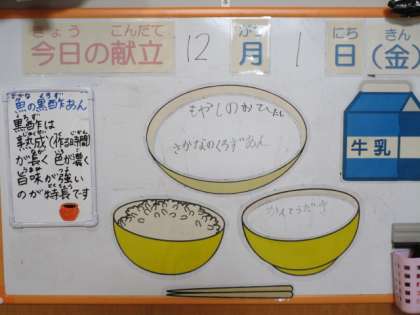 きょう こんだて がつ にち きん
今日の献立 12 月 1 日 (金)
さかな くろず
魚の黒酢あん
くろず
黒酢は
じゅくせい つく じかん
熟成(作る時間)
なが いろ こ
が長く 色が濃く
うまみ つよ
旨味が強い
とくちょう
のが特長です
もやしの
さかなのくろずあん
牛乳